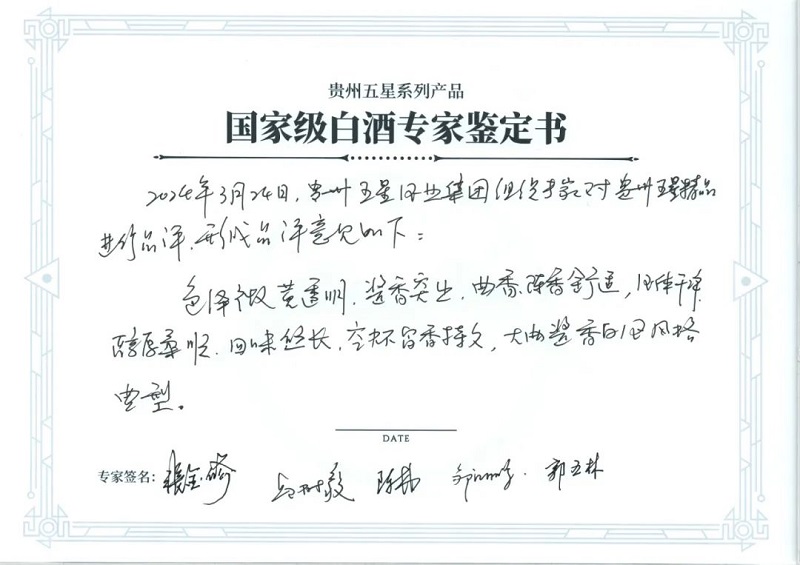 贵州五星系列产品
国家级白酒专家鉴定书
2024年3月24日，贵州五星酒业集团组织专家对贵州五星精品
进行品评，形成品评意见如下：
色泽微黄透明，酱香突出，曲香、陈香舒适，酒体干净
醇厚柔顺，回味悠长，空杯留香持久，大曲酱香白酒风格
典型。
DATE
专家签名：